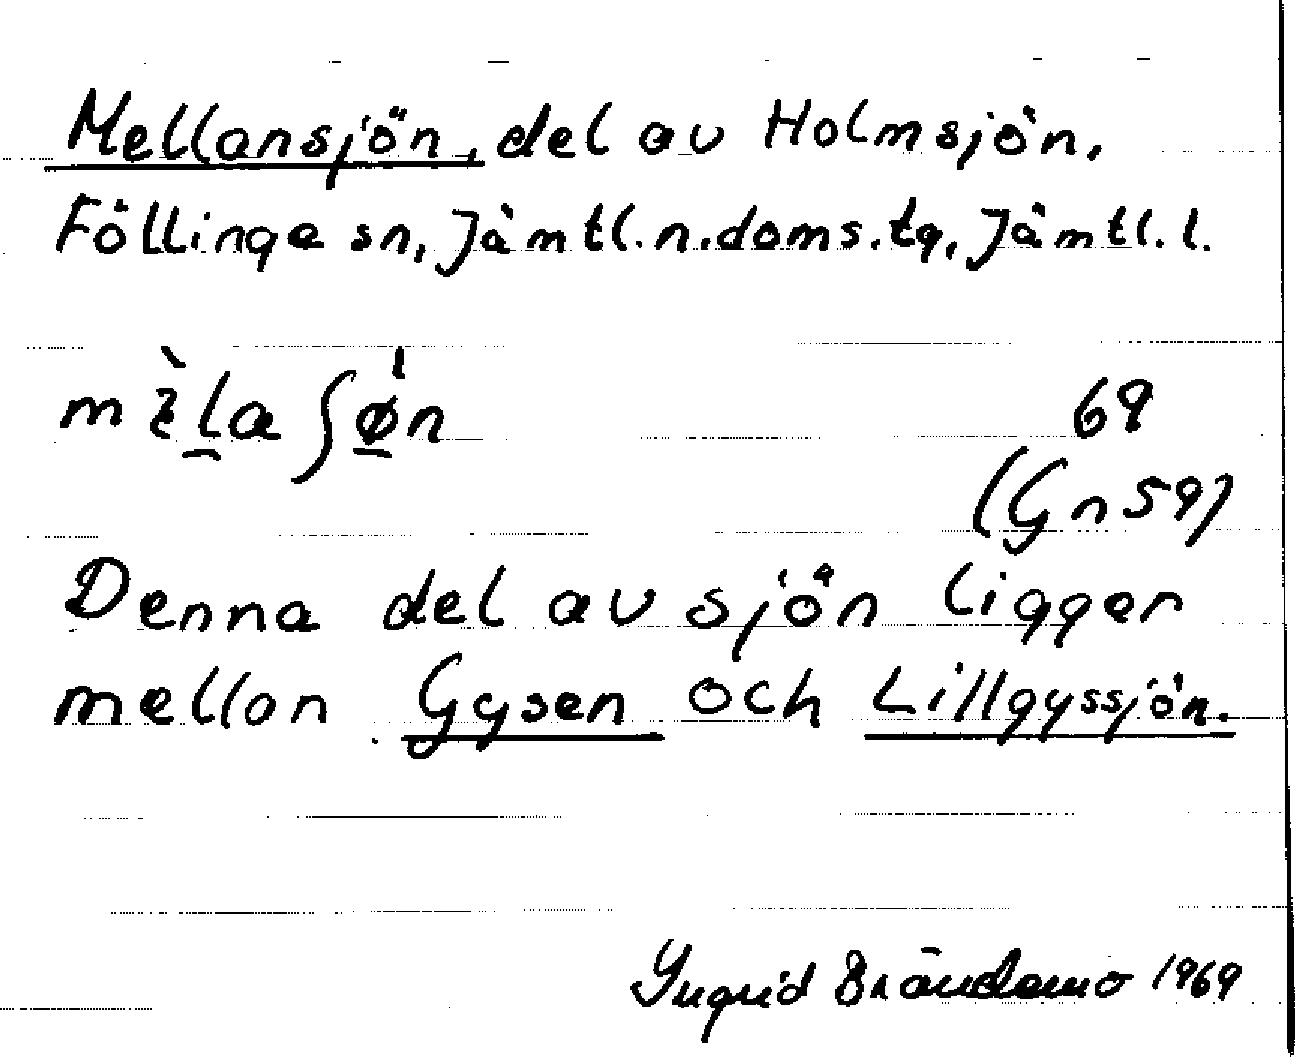 Mellansjön, del av Holmsjön,
Föllinge sn, Jämtl.n.doms.tg, Jämtl.l.
mɛ̀la ʃø̱̍n
69
(Gn 59)
Denna del av sjön ligger
mellan Gysen och Lillgyssjön.
Ingrid Brändemo 1969